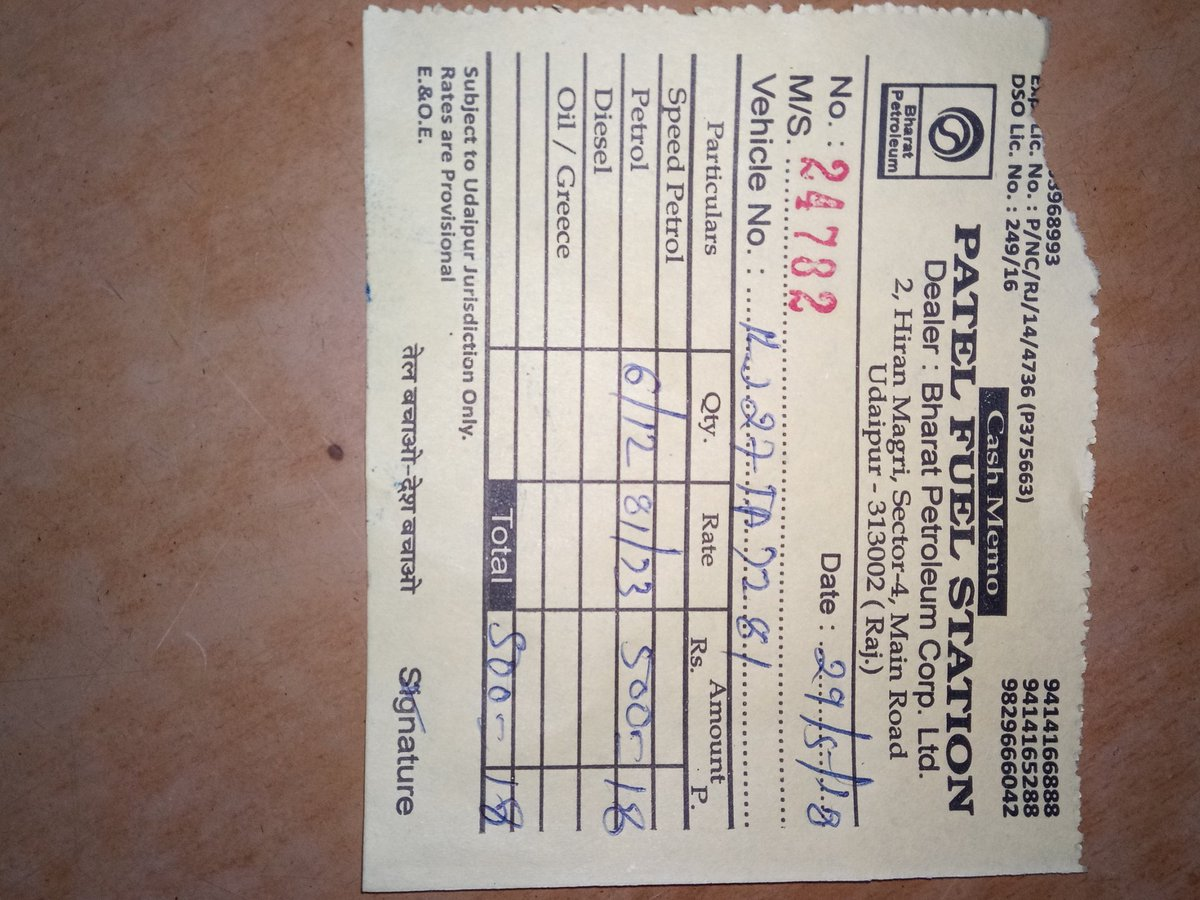 Lic. No. : P/NC/RJ/14/4736 (P375663)
DSO Lic. No. : 249/16
3968993
9414166888
9414165288
9829666042
Cash Memo
Bharat
Petroleum
PATEL FUEL STATION
Dealer : Bharat Petroleum Corp. Ltd.
2, Hiran Magri, Sector-4, Main Road
Udaipur - 313002 (Raj.)
No. : 24782 Date : 29/5/18
M/S.
Vehicle No. : 27 TA 2281
Particulars Qty. Rate Amount
Rs. P.
Speed Petrol
Petrol 6/12 81/73 500 - 18
Diesel
Oil / Greece
Total 500 - 18
Subject to Udaipur Jurisdiction Only.
Rates are Provisional
E.&O.E.
तेल बचाओ-देश बचाओ Signature